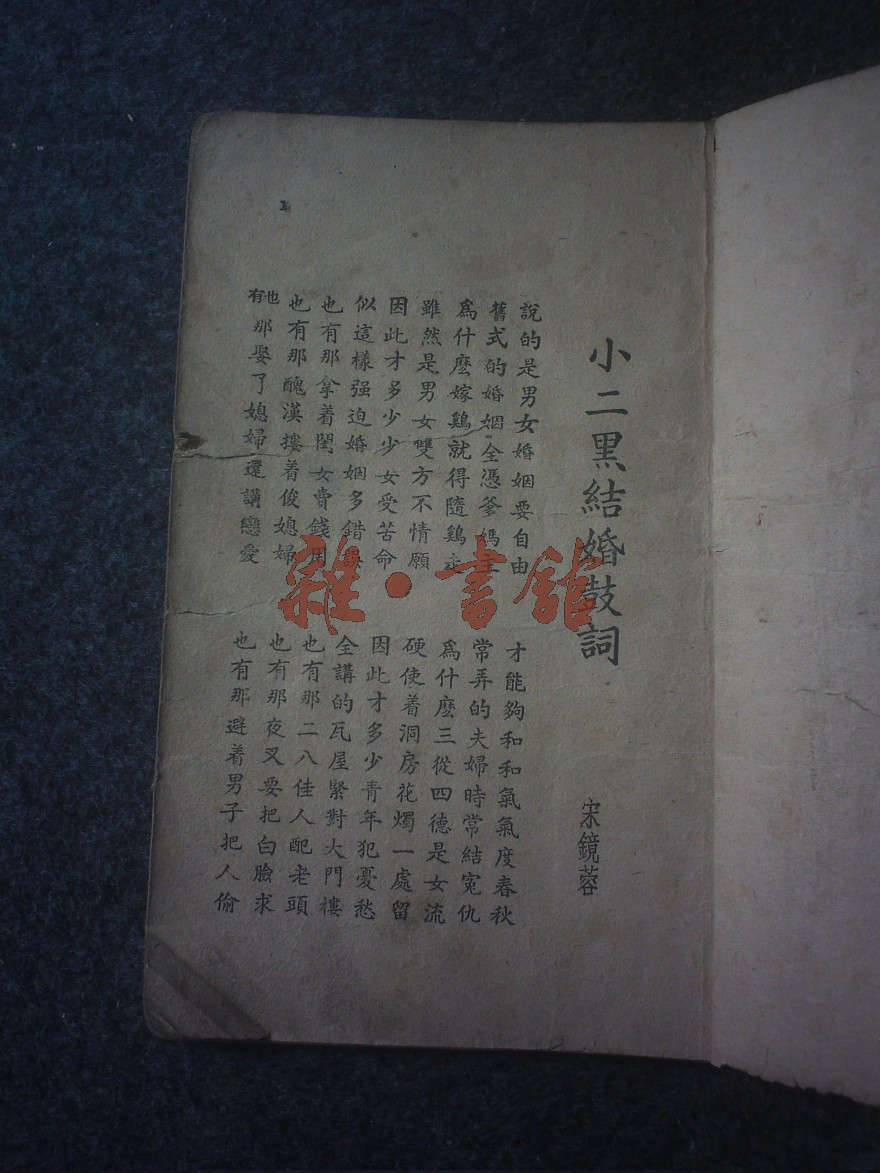 小二黑結婚鼓詞
宋鏡蓉
說的是男女婚姻要自由
才能夠和和氣氣度春秋
舊式的婚姻全憑爹媽主
常弄的夫婦時常結寃仇
爲什麽嫁鷄就得隨鷄走
爲什麽三從四德是女流
雖然是男女雙方不情願
硬使着洞房花燭一處留
因此才多少少女受苦命
因此才多少青年犯憂愁
似這樣强迫婚姻多錯誤
全講的瓦屋緊對大門樓
也有那拿着閨女賣錢用
也有那二八佳人配老頭
也有那醜漢摟着俊媳婦
也有那夜叉要把白臉求
也有那娶了媳婦還講戀愛
也有那避着男子把人偷
1
雜·書館